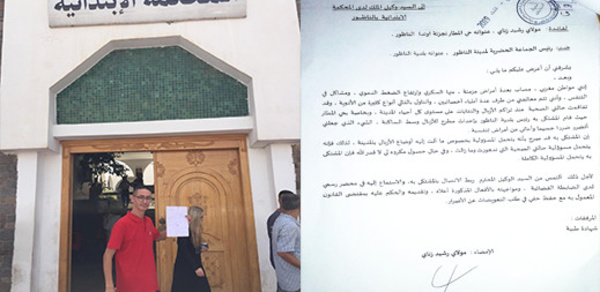 المحكمة الإبتدائية
إلى السيد وكيل الملك لدى المحكمة
الابتدائية بالناظور
لفائدة : مولاي رشيد زناي ، عنوانه حي المطار تجزئة الناظور
ضد : رئيس الجماعة الحضرية لمدينة الناظور ، عنوانه بلدية الناظور
يشرفني أن أعرض عليكم ما يلي :
وبعد ،
إنني مواطن مغربي ، مصاب بعدة أمراض مزمنة ، منها السكري وارتفاع الضغط الدموي ، ومشاكل في
التنفس ، وأنني تتم معالجتي من طرف عدة أطباء اخصائيين ، وأتناول بالتالي أنواع كثيرة من الأدوية ، وقد
تفاقمت حالتي الصحية منذ تراكم الأزبال والنفايات على مستوى كل أحياء المدينة ، وبخاصة بحي المطار
حيث قام المشتكى به رئيس بلدية الناظور بإحداث مطرح للأزبال وسط الساكنة ، الشيء الذي جعلني
أتضرر ضررا جسيما وأعاني من أمراض تنفسية .
إن المشتكى به قد صرح بأنه يتحمل المسؤولية بخصوص ما آلت إليه أوضاع الأزبال بالمدينة ، لذلك فإنه
يتحمل مسؤولية حالتي الصحية التي تدهورت وما زالت ، وفي حال حصول مكروه لي لا قدر الله فإن المشتكى
به يتحمل المسؤولية الكاملة
لأجل ذلك ، ألتمس من السيد الوكيل المحترم ربط الاتصال بالمشتكى به ، والاستماع إليه في محضر رسمي
لدى الضابطة القضائية ، ومواجهته بالأفعال المذكورة أعلاه ، وتقديمه والحكم عليه بمقتضى القانون
المعمول به مع حفظ حقي في طلب التعويضات عن الأضرار .
المرفقات :
شهادة طبية
الإمضاء : مولاي رشيد زناي